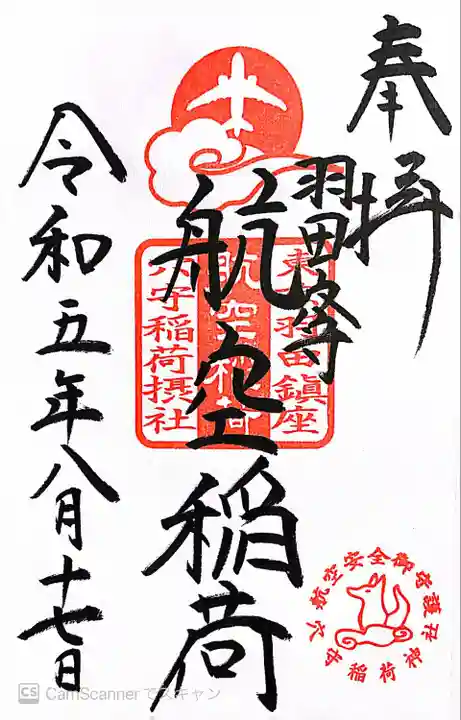 奉拝
羽田穴守
東京羽田鎮座
航空稲荷
航空稲荷
穴守稲荷摂社
令和五年八月十七日
航空安全御守護
穴守稲荷神社
CS CamScannerでスキャン